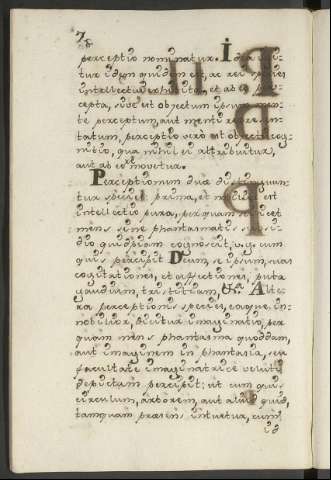 78
perceptio nominatur. Idea igi-
tur idem quidem est, ac rei species
intellectui exhibita, et ab
cepta, sive est objectum ipsum men-
te perceptum, aut menti repraesen-
tatum, perceptio vero est objecti cog-
nitio, qua nihil ei attribuitur,
aut ab eo removetur.
Perceptionum duae distinguun-
tur species prima, et nobilior est
intellectio pura, per quam scilicet
mens sine phantasmatis subsi-
dio quidpiam cognoscit, v.g. cum
quis percipit Deum, se ipsum, suas
cogitationes, et affectiones, puta
gaudium, tristitiam &c. Alte-
ra perceptionis species, eaque ig-
nobilior, dicitur imaginatio, per
quam mens phantasma quoddam,
aut imaginem in phantasia, seu
facultate imaginatrice veluti
depictam percipit; ut cum quis
circulum, arborem, aut aliud quid,
tamquam praesens intuetur, cum